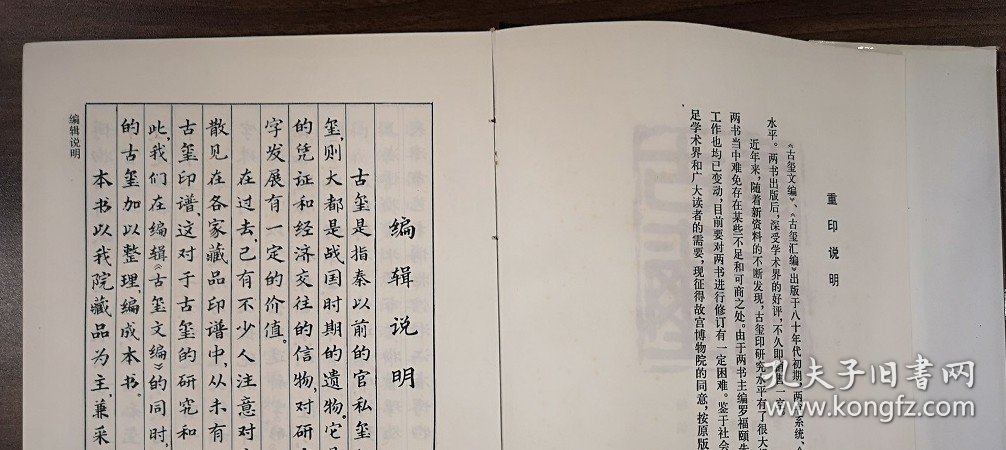 重印说明
《古玺文编》、《古玺汇编》出版于八十年代初期，两
系统、
水平。两书出版后，深受学术界的好评，不久即销售一空
近年来，随着新资料的不断发现，古玺印研究水平有了很大
两书当中难免存在某些不足和可商之处。由于两书主编罗福颐先
工作也均已变动，目前要对两书进行修订有一定困难。鉴于社会
足学术界和广大读者的需要，现征得故宫博物院的同意，按原版
编辑说明
古玺是指秦以前的官私玺
玺，则大都是战国时期的遗物。它
的凭证和经济交往的信物，对研
字发展有一定的价值。
在过去，已有不少人注意对
散见在各家藏品印谱中，从未有
古玺印谱，这对于古玺的研究和
此，我们在编辑《古玺文编》的同时，
的古玺加以整理编成本书。
本书以我院藏品为主，兼采
编辑说明
孔夫子旧书网
kongfz.com